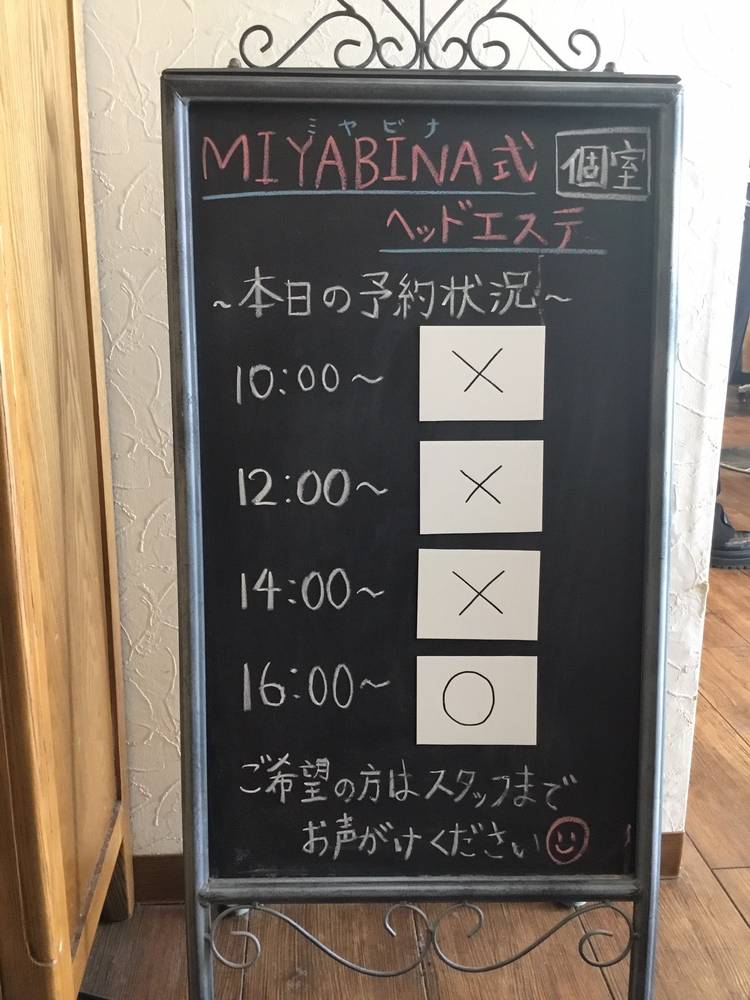 ミヤビナ
MIYABINA式 個室
ヘッドエステ
~本日の予約状況~
10:00~ ×
12:00~ ×
14:00~ ×
16:00~ ○
ご希望の方はスタッフまで
お声がけください